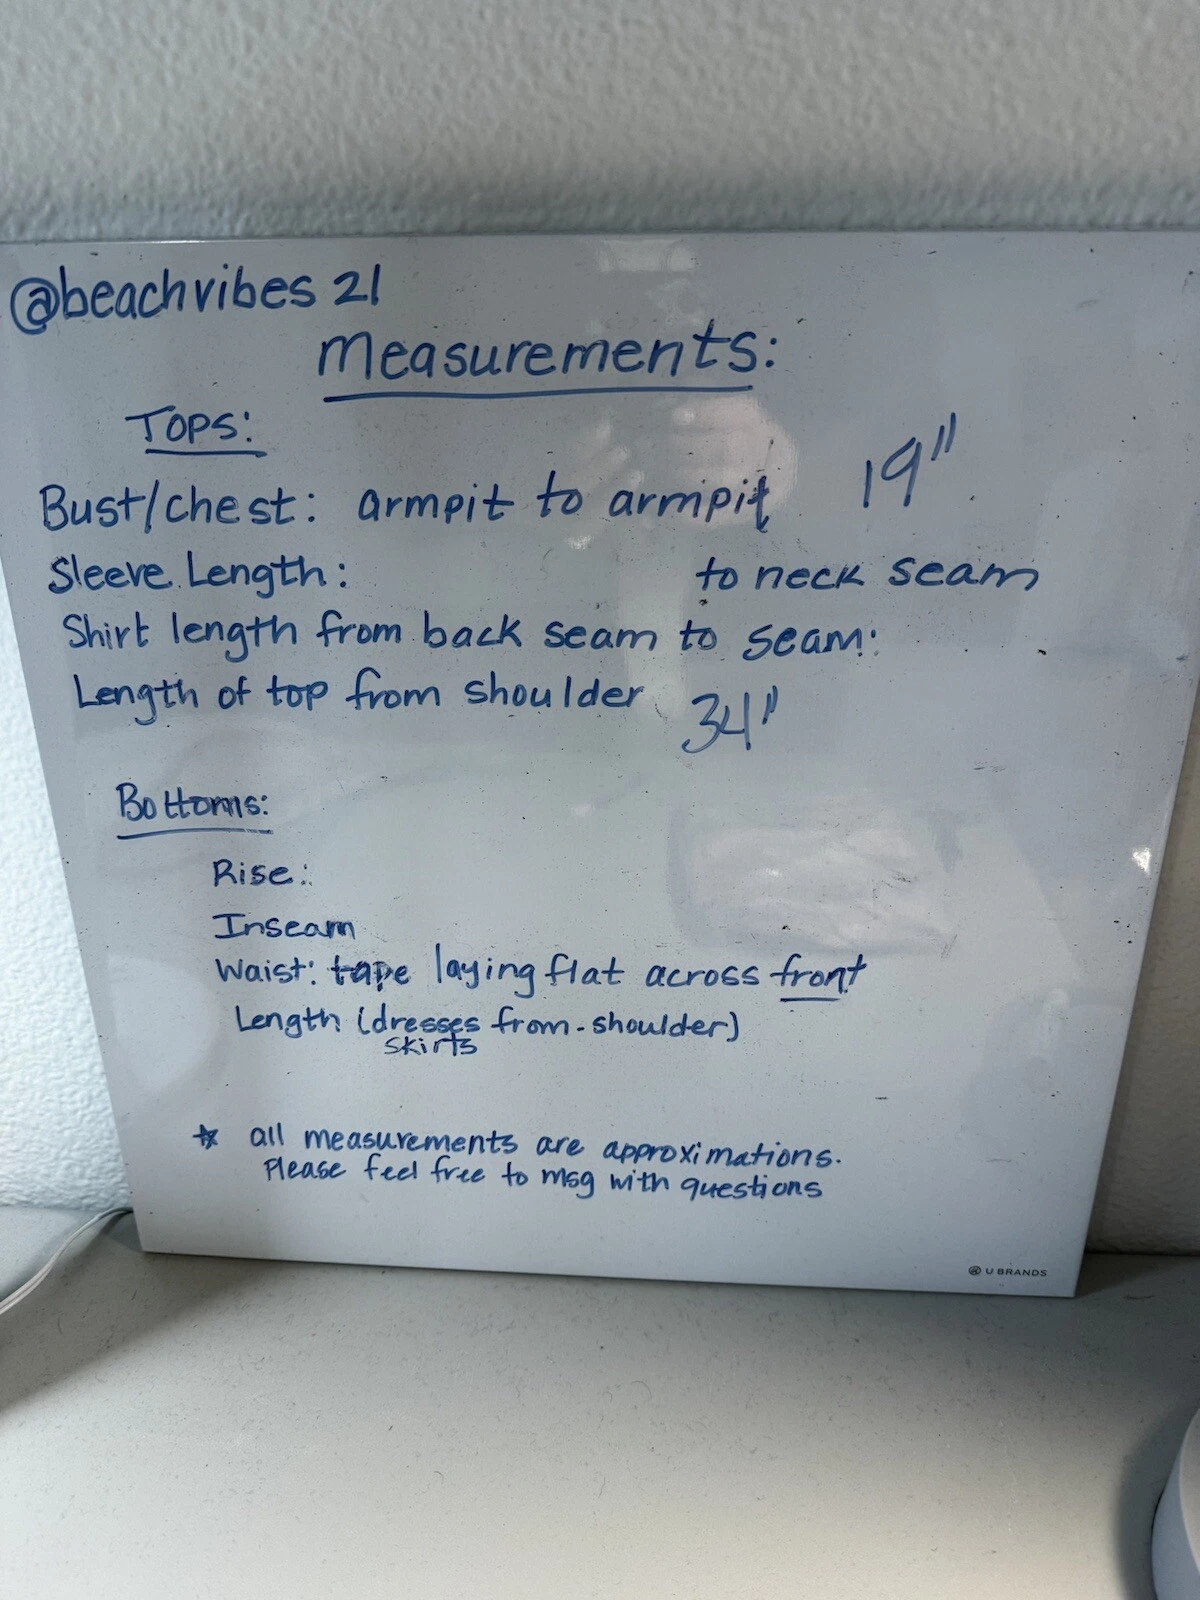 @beachvibes 21
Measurements:
TOPS:
Bust/chest: armpit to armpit 19"
Sleeve Length: to neck seam
Shirt length from back seam to seam:
Length of top from shoulder 34"
Bottoms:
Rise:
Inseam
Waist: tape laying flat across front
Length (dresses from shoulder)
skirts
☆ all measurements are approximations.
Please feel free to msg with questions
U BRANDS